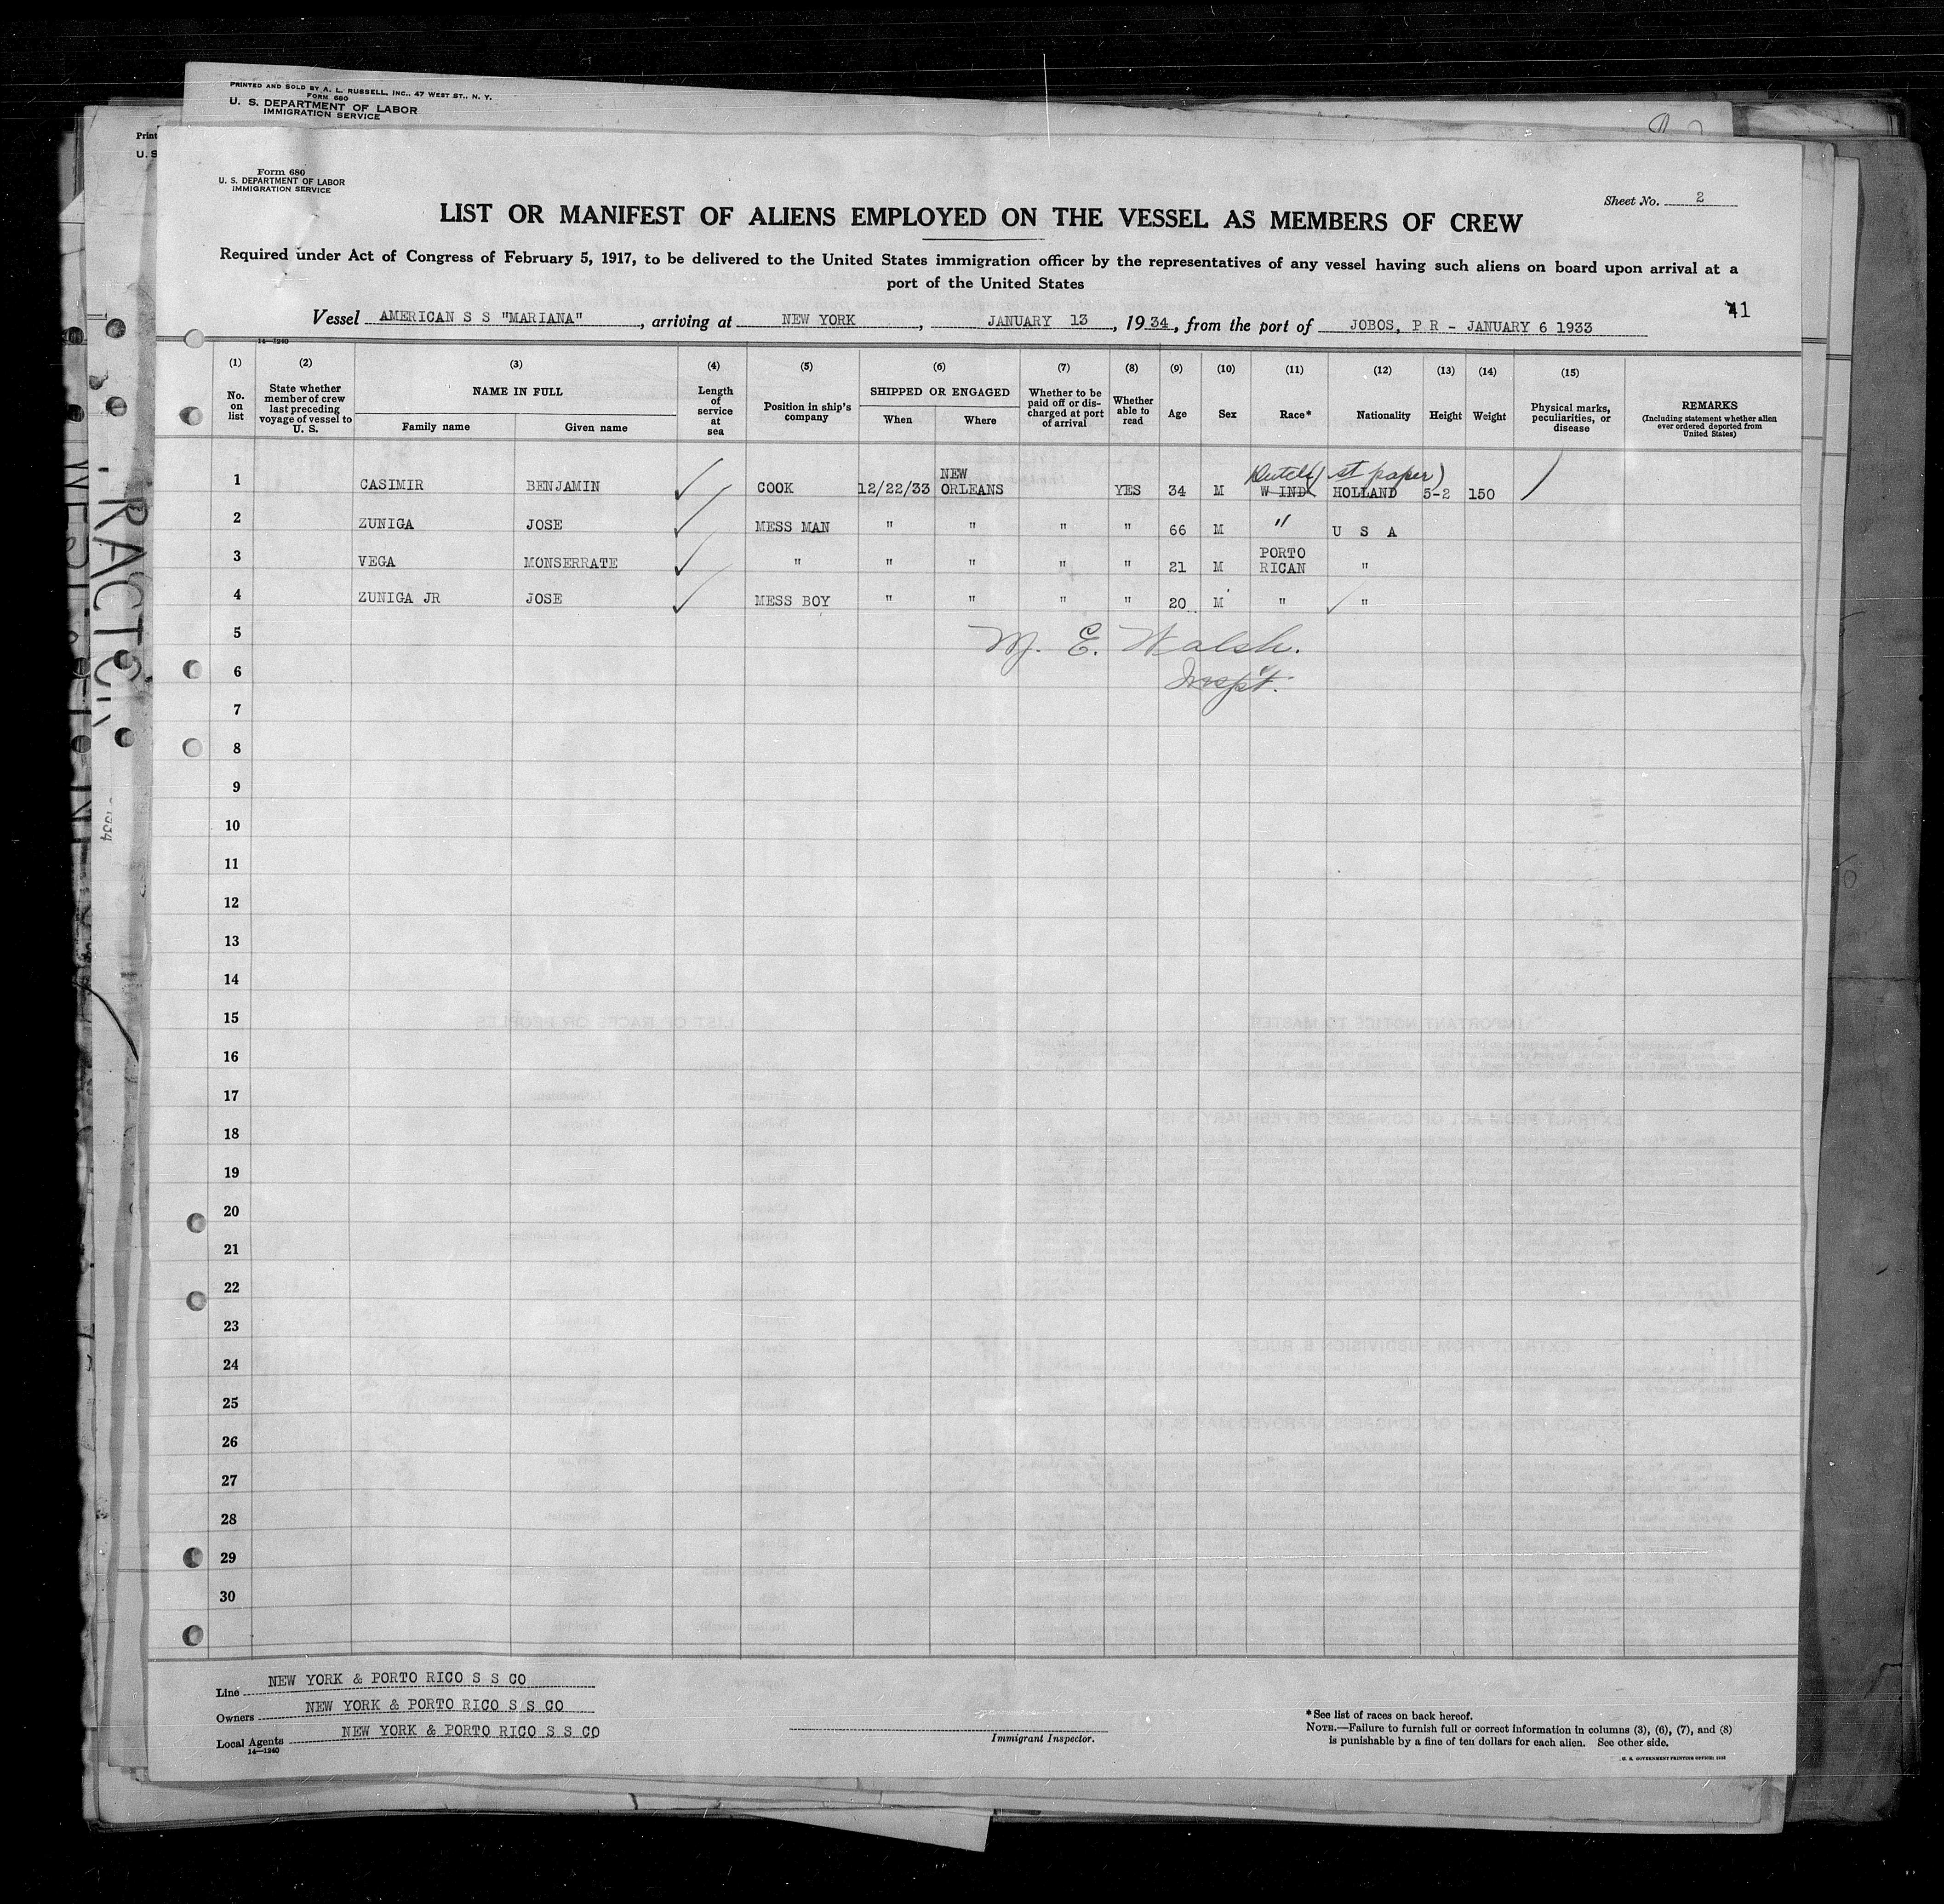 PRINTED AND SOLD BY A. L. RUSSELL, INC., 47 WEST ST., N. Y.
FORM 680
U. S. DEPARTMENT OF LABOR
IMMIGRATION SERVICE
Print
U. S
Form 680
U. S. DEPARTMENT OF LABOR
IMMIGRATION SERVICE
Sheet No. 2
LIST OR MANIFEST OF ALIENS EMPLOYED ON THE VESSEL AS MEMBERS OF CREW
Required under Act of Congress of February 5, 1917, to be delivered to the United States immigration officer by the representatives of any vessel having such aliens on board upon arrival at a
port of the United States
41
Vessel AMERICAN S S "MARIANA", arriving at NEW YORK, JANUARY 13, 1934, from the port of JOBOS, P R - JANUARY 6 1933
14—1240
(1) (2) (3) (4) (5) (6) (7) (8) (9) (10) (11) (12) (13) (14) (15)
No. on list
State whether member of crew last preceding voyage of vessel to U. S.
NAME IN FULL
Family name Given name
Length of service at sea
Position in ship's company
SHIPPED OR ENGAGED
When Where
Whether to be paid off or discharged at port of arrival
Whether able to read
Age
Sex
Race*
Nationality
Height
Weight
Physical marks, peculiarities, or disease
REMARKS
(Including statement whether alien ever ordered deported from United States)
1 CASIMIR BENJAMIN ✓ COOK 12/22/33 NEW ORLEANS YES 34 M W IND Dutch (st paper) HOLLAND 5-2 150 /
2 ZUNIGA JOSE ✓ MESS MAN " " " " 66 M " U S A
3 VEGA MONSERRATE ✓ " " " " " 21 M PORTO RICAN "
4 ZUNIGA JR JOSE ✓ MESS BOY " " " " 20 M " ✓ "
5
M. E. Walsh.
6
Insp't.
7
8
9
10
11
12
13
14
15
16
17
18
19
20
21
22
23
24
25
26
27
28
29
30
Line NEW YORK & PORTO RICO S S CO
Owners NEW YORK & PORTO RICO S S CO
Local Agents NEW YORK & PORTO RICO S S CO
14—1240
Immigrant Inspector.
*See list of races on back hereof.
NOTE.—Failure to furnish full or correct information in columns (3), (6), (7), and (8)
is punishable by a fine of ten dollars for each alien. See other side.